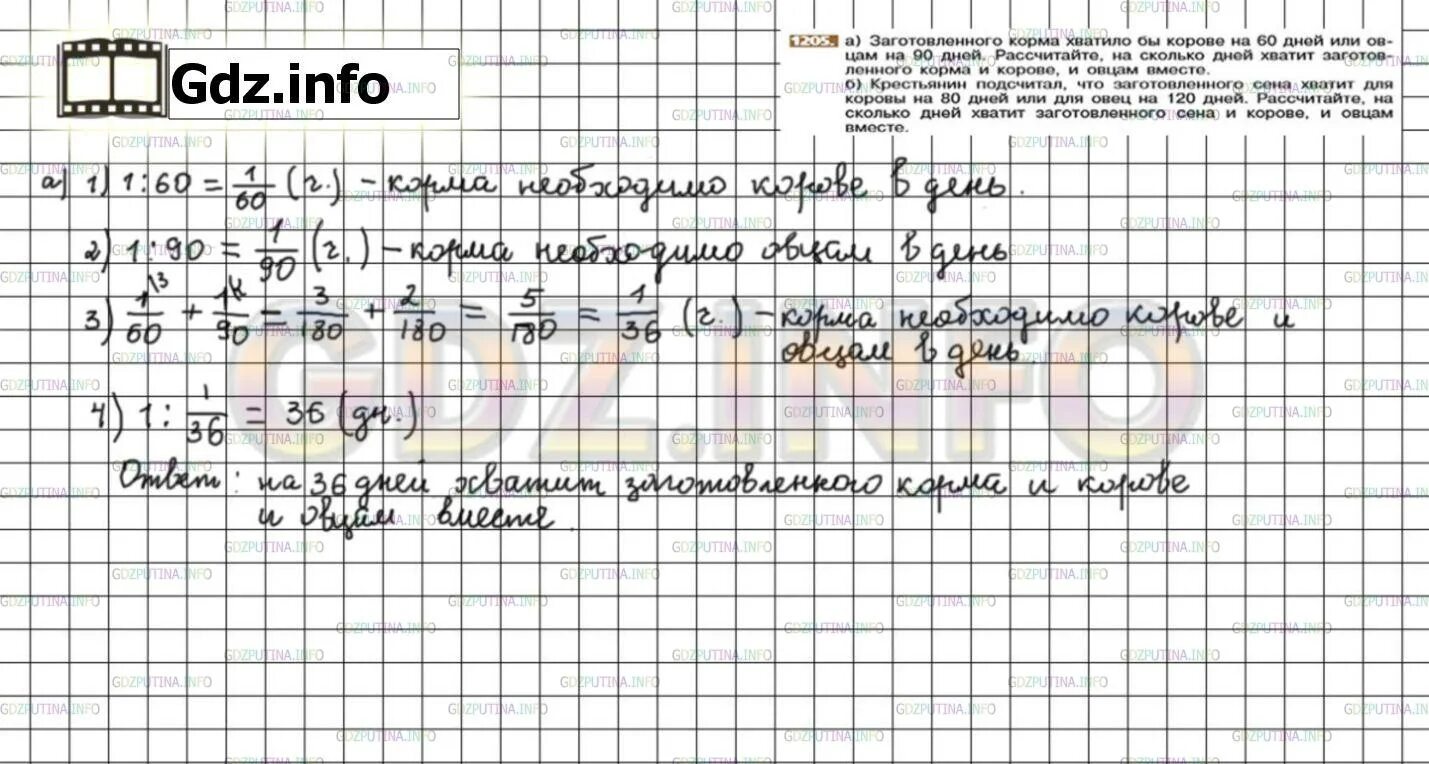 Gdz.info
1205. а) Заготовленного корма хватило бы корове на 60 дней или ов-
цам на 90 дней. Рассчитайте, на сколько дней хватит заготов-
ленного корма и корове, и овцам вместе.
б) Крестьянин подсчитал, что заготовленного сена хватит для
коровы на 80 дней или для овец на 120 дней. Рассчитайте, на
сколько дней хватит заготовленного сена и корове, и овцам
вместе.
а) 1) 1:60 = 1/60 (г.) – корма необходимо корове в день.
2) 1:90 = 1/90 (г.) – корма необходимо овцам в день
3) 1/60 + 1/90 = 3/180 + 2/180 = 5/180 = 1/36 (г.) – корма необходимо корове и
овцам в день
4) 1 : 1/36 = 36 (дн.)
Ответ: на 36 дней хватит заготовленного корма и корове
и овцам вместе.
GDZ.INFO
GDZPUTINA.INFO